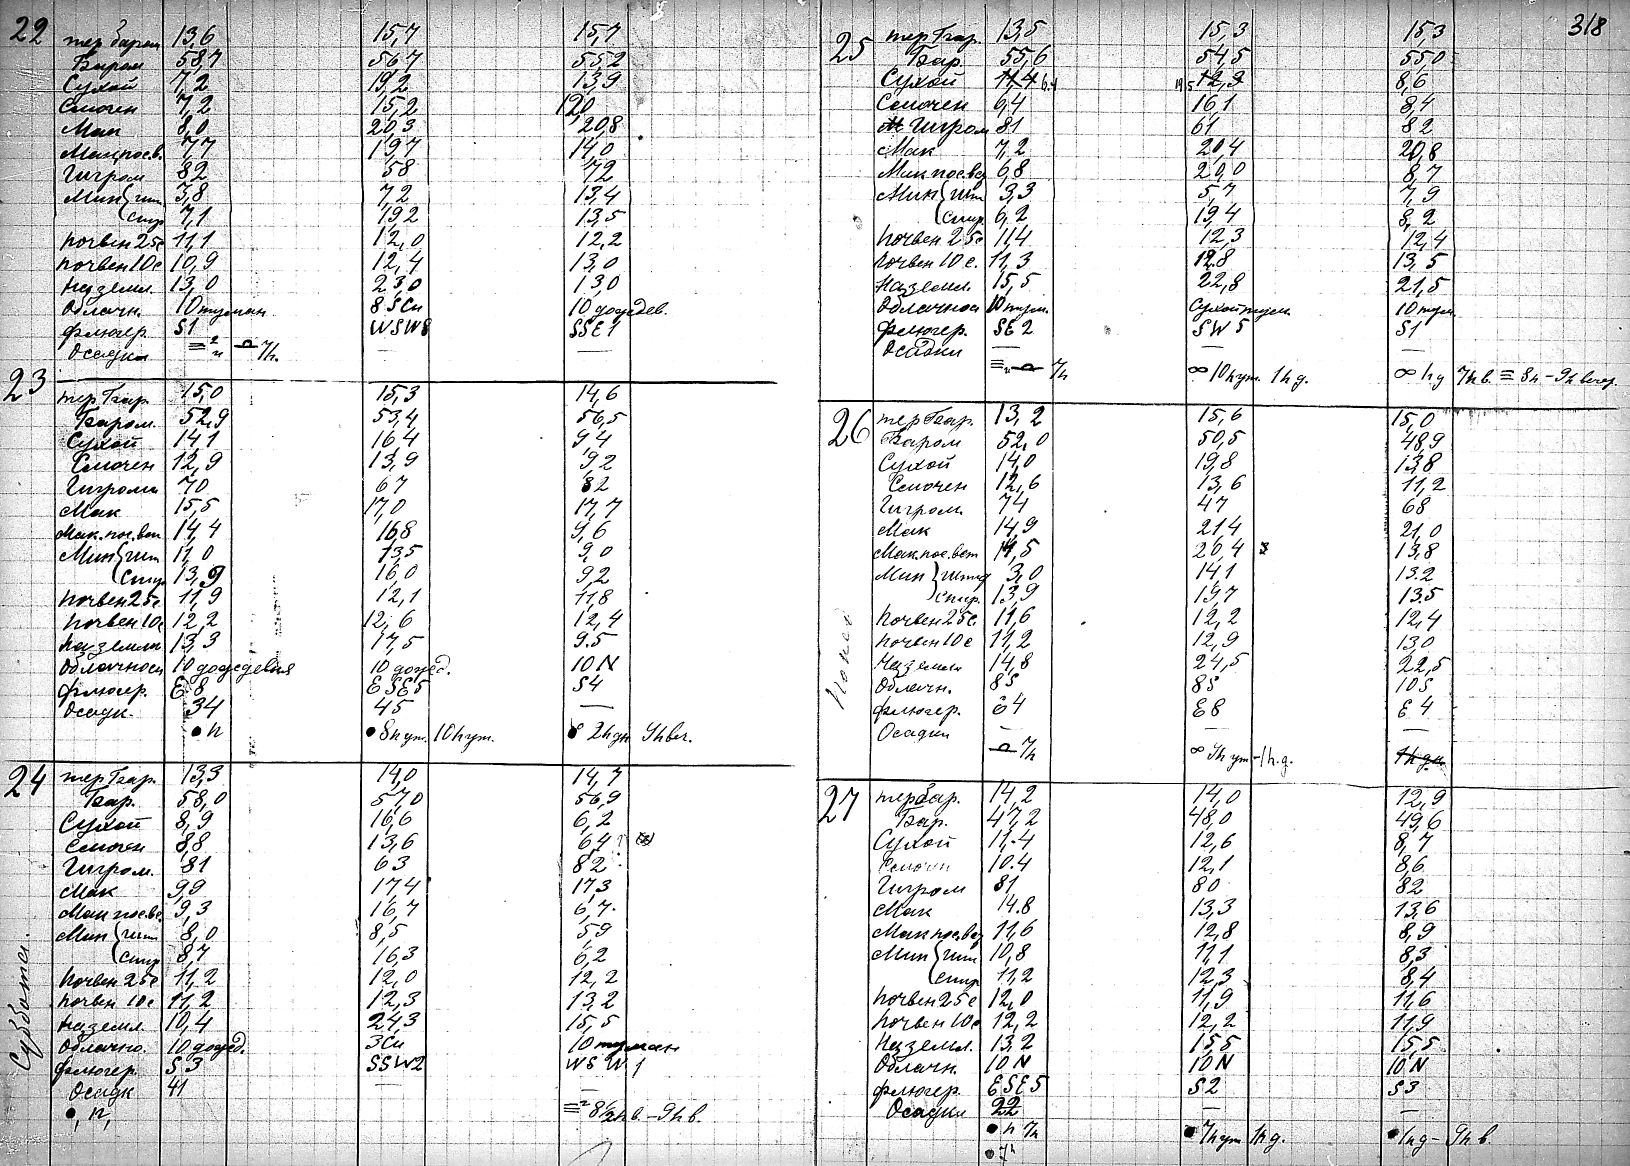 318
22 тер баром 13,6 15,7 15,7
Баром 58,7 56,7 55,2
Сухой 7,2 19,2 13,9
Смочен 7,2 15,2 12,0
Мак 8,0 20,3 20,8
Мак.посв. 7,7 19,7 14,0
Гигром 82 58 72
Мин { шт 3,8 7,2 13,4
спир 7,1 19,2 13,5
почвен 25с 11,1 12,0 12,2
почвен 10с 10,9 12,4 13,0
наземл. 13,0 23,0 13,0
Облачн. 10 туман 8 SCu 10 дождев.
флюгер. S1 WSW8 SSE1
Осадки — —
23 тер Бар. 15,0 15,3 14,6
Баром. 52,9 53,4 56,5
Сухой 14,1 16,4 9,4
Смочен 12,9 13,9 9,2
Гигром 70 67 82
Мак 15,5 17,0 17,7
Мак.пос.вет 14,4 16,8 9,6
Мин { шт 11,0 13,5 9,0
спир 13,9 16,0 9,2
почвен 25с 11,9 12,1 11,8
почвен 10с 12,2 12,6 12,4
наземлн 13,3 17,5 9,5
Облачност 10 дождевыя 10 дожд. 10 N
флюгер. E 8 ESE5 S4
Осадк. 34 45 —
• n • 8h ут. 10h ут. • 2h дн 9h веч.
24 тер Бар. 13,3 14,0 14,7
Бар. 58,0 57,0 56,9
Сухой 8,9 16,6 6,2
Смочен 8,8 13,6 6,4
Гигром. 81 63 82
Мак 9,9 17,4 17,3
Мак посве. 9,3 16,7 6,7
Мин { шт 8,0 8,5 5,9
спир 8,7 16,3 6,2
почвен 25с 11,2 12,0 12,2
почвен 10с 11,2 12,3 13,2
наземл. 10,4 24,3 15,5
Облачно. 10 дожд. 3Cu 10 туман
флюгер. S3 SSW2 WSW1
Осадк 41 — —
• n, ≡² 8½h в. – 9h в.
Суббота.
25 тер Бар. 13,5 15,3 15,3
Бар. 55,6 54,5 55,0
Сухой 6,4 19,5 8,6
Смочен 6,4 16,1 8,4
Гигром 81 61 82
Мак 7,2 20,4 20,8
Мак посве 6,8 20,0 8,7
Мин { шт 3,3 5,7 7,9
спир 6,2 19,4 8,2
почвен 25с 11,4 12,3 12,4
почвен 10с. 11,3 12,8 13,5
наземлн 15,5 22,8 21,5
Облачнос 10 тум. Сухой тум. 10 тум.
флюгер. SE 2 SW 5 S1
Осадки — —
≡ n 7h ∞ 10h ут. 1h д. ∞ 1h д 7h в. ≡ 8h – 9h вечер.
26 тер Бар. 13,2 15,6 15,0
Баром 52,0 50,5 48,9
Сухой 14,0 19,8 13,8
Смочен 12,6 13,6 11,2
Гигром. 74 47 68
Мак 14,9 21,4 21,0
Мак пос.вет 14,5 20,4 13,8
Мин } штиф 3,0 14,1 13,2
спир. 13,9 19,7 13,5
почвен 25с. 11,6 12,2 12,4
почвен 10с 11,2 12,9 13,0
Наземлн 14,8 24,5 22,5
Облачн. 8S 8S 10S
флюгер. E 4 E8 E 4
Осадки — — —
7h ∞ 9h ут – 1h. д. 1h дн
27 тер бар. 14,2 14,0 12,9
Бар. 47,2 48,0 49,6
Сухой 11,4 12,6 8,7
Смочен 10,4 12,1 8,6
Гигром 81 80 82
Мак 14,8 13,3 13,6
Мак посвет 11,6 12,8 8,9
Мин { шт 10,8 11,1 8,3
спир 11,2 12,3 8,4
почвен 25с 12,0 11,9 11,6
почвен 10с 12,2 12,2 11,9
Наземл. 13,2 15,5 15,5
Облачн. 10 N 10 N 10 N
флюгер. ESE5 S2 S3
Осадки 22 — —
• n 7h • 7h ут 1h д. • 1h д – 9h в.